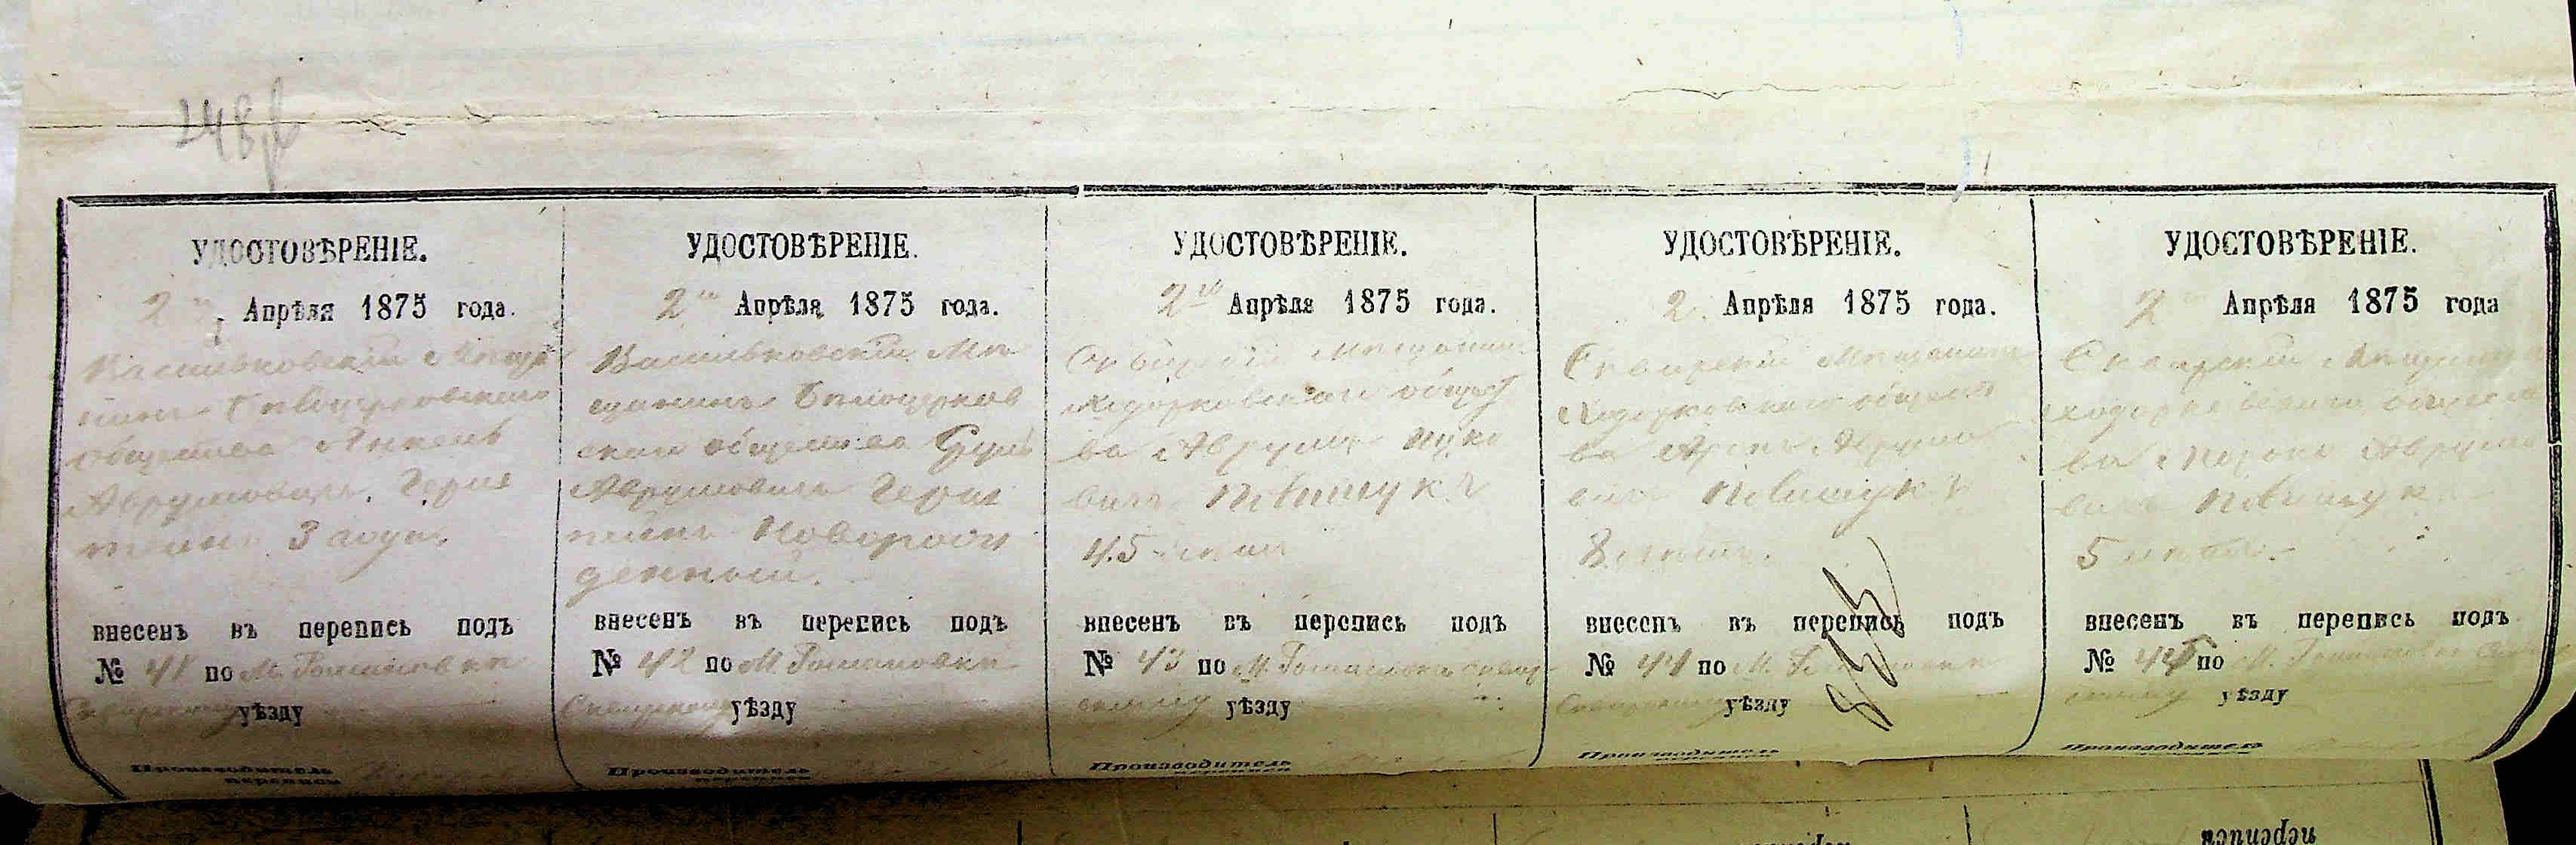 248
УДОСТОВѢРЕНІЕ.
2го Апрѣля 1875 года.
Васильковскій Мѣща
нинъ Бѣлоцерковскаго
общества Янкель
Аврумовичъ Герш
тейнъ 3 года
внесенъ въ перепись подъ
№ 41 по М. Романовкѣ
Сквирскому уѣзду
Производитель
переписи
УДОСТОВѢРЕНІЕ.
2го Апрѣля 1875 года.
Васильковскій Мѣ
щанинъ Бѣлоцерков
скаго общества
Аврумовичъ Герш
тейнъ Новорож
денный.
внесенъ въ перепись подъ
№ 42 по М. Романовкѣ
Сквирскому уѣзду
Производитель
переписи
УДОСТОВѢРЕНІЕ.
2го Апрѣля 1875 года.
Сквирскій Мѣщанинъ
Ходорковскаго общест
ва Аврумъ Ицко
вичъ
45 лѣтъ
внесенъ въ перепись подъ
№ 43 по М. Романовкѣ Сквир
скому уѣзду
Производитель
переписи
УДОСТОВѢРЕНІЕ.
2. Апрѣля 1875 года.
Сквирскій Мѣщанинъ
Ходорковскаго общест
ва Аврумо
вичъ
8 лѣтъ.
внесенъ въ перепись подъ
№ 44 по М. Романовкѣ
Сквирскому уѣзду
Производитель
переписи
УДОСТОВѢРЕНІЕ.
2 Апрѣля 1875 года
Сквирскій Мѣщанинъ
Ходорковскаго общест
ва Аврумо
вичъ
5 лѣтъ.
внесенъ въ перепись подъ
№ 45 по М. Романовкѣ Сквир
скому уѣзду
Производитель
переписи